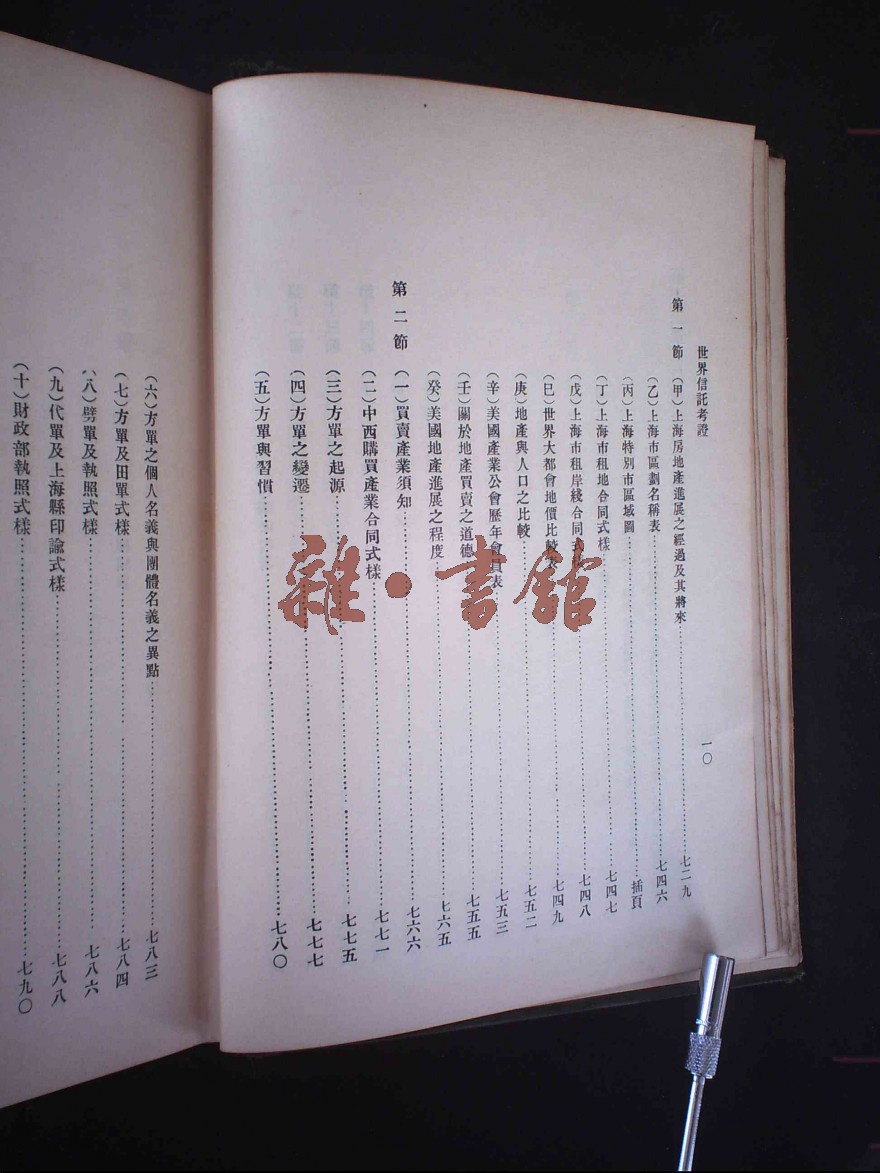 世界信託考證
一〇
第一節 (甲)上海房地產進展之經過及其將來……七二九
(乙)上海市區劃名稱表……七四六
(丙)上海特別市區域圖……插頁
(丁)上海市租地合同式樣……七四七
(戊)上海市租岸綫合同式……七四八
(巳)世界大都會地價比較表……七四九
(庚)地產與人口之比較……七五二
(辛)美國產業公會歷年會員表……七五三
(壬)關於地產買賣之道德……七五五
(癸)美國地產進展之程度……七六五
第二節 (一)買賣產業須知……七六六
(二)中西購買產業合同式樣……七七一
(三)方單之起源……七七五
(四)方單之變遷……七七七
(五)方單與習慣……七八〇
(六)方單之個人名義與團體名義之異點……七八三
(七)方單及田單式樣……七八四
(八)劈單及執照式樣……七八六
(九)代單及上海縣印諭式樣……七八八
(十)財政部執照式樣……七九〇
雜·書館